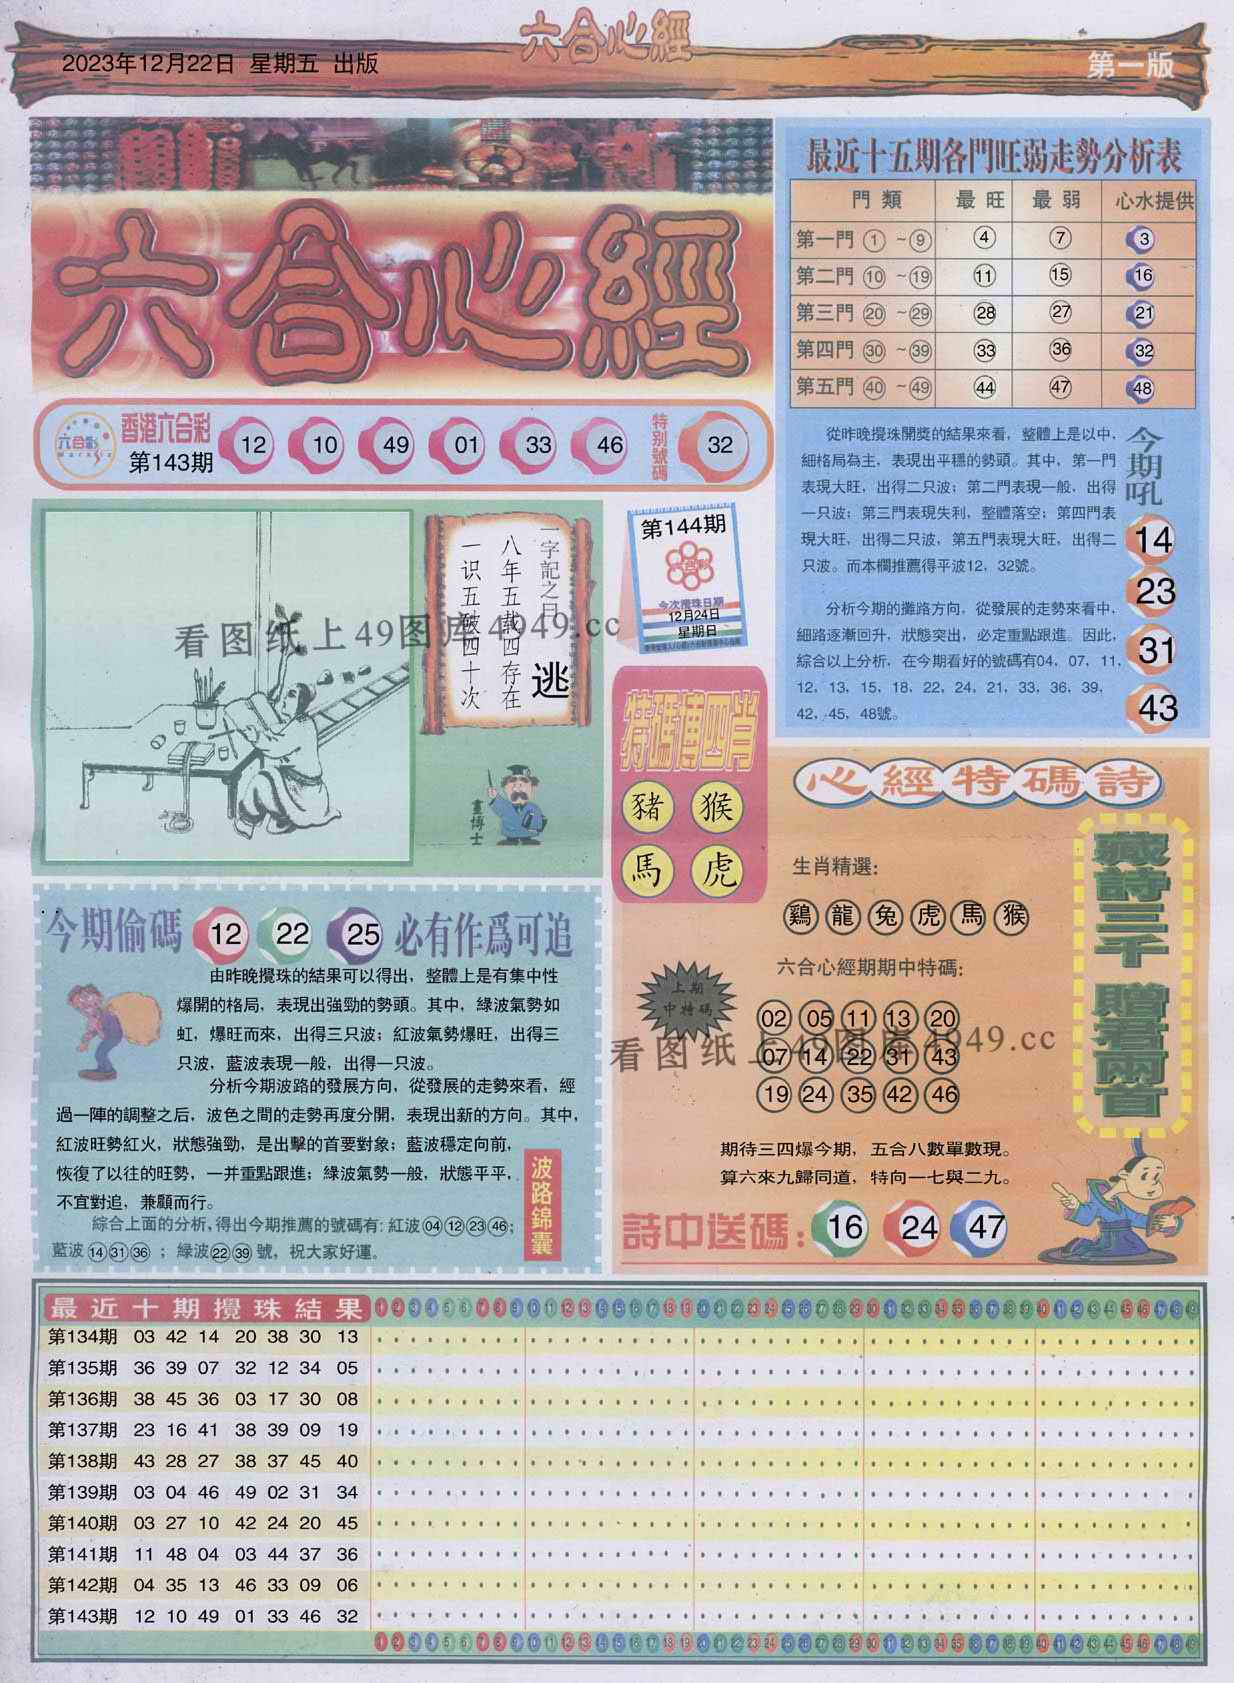 六合心經
2023年12月22日 星期五 出版
第一版
六合心經
香港六合彩
第143期
12 10 49 01 33 46
特别號碼
32
最近十五期各門旺弱走勢分析表
門類 最旺 最弱 心水提供
第一門 ①~⑨ 4 7 3
第二門 ⑩~⑲ 11 15 16
第三門 ⑳~㉙ 28 27 21
第四門 ㉚~㊴ 33 36 32
第五門 ㊵~㊾ 44 47 48
從昨晚攪珠開獎的結果來看，整體上是以中，
細格局為主，表現出平穩的勢頭。其中，第一門
表現大旺，出得二只波；第二門表現一般，出得
一只波；第三門表現失利，整體落空；第四門表
現大旺，出得二只波，第五門表現大旺，出得二
只波。而本欄推薦得平波12，32號。
分析今期的攤路方向，從發展的走勢來看中，
細路逐漸回升，狀態突出，必定重點跟進。因此，
綜合以上分析，在今期看好的號碼有04，07，11，
12，13，15，18，22，24，21，33，36，39，
42，45，48號。
今期吼
14
23
31
43
一字記之曰
逃
八年五載四存在
一识五破四十次
畫博士
第144期
六合彩
今次攪珠日期
12月24日
星期日
看图纸上49图库4949.cc
特碼博四肖
豬 猴
馬 虎
心經特碼詩
生肖精選:
鷄 龍 兔 虎 馬 猴
六合心經期期中特碼:
上期
中特碼
02 05 11 13 20
07 14 22 31 43
19 24 35 42 46
看图纸上49图库4949.cc
期待三四爆今期，五合八數單數現。
算六來九歸同道，特向一七與二九。
詩中送碼: 16 24 47
藏詩三千 贈君兩首
今期偷碼 12 22 25 必有作爲可追
由昨晚攪珠的結果可以得出，整體上是有集中性
爆開的格局，表現出強勁的勢頭。其中，綠波氣勢如
虹，爆旺而來，出得三只波；紅波氣勢爆旺，出得三
只波，藍波表現一般，出得一只波。
分析今期波路的發展方向，從發展的走勢來看，經
過一陣的調整之后，波色之間的走勢再度分開，表現出新的方向。其中，
紅波旺勢紅火，狀態強勁，是出擊的首要對象；藍波穩定向前，
恢復了以往的旺勢，一并重點跟進；綠波氣勢一般，狀態平平，
不宜對追，兼顧而行。
綜合上面的分析,得出今期推薦的號碼有: 紅波④⑫㉓㊻;
藍波⑭㉛㊱ ; 綠波㉒㊴號，祝大家好運。
波路錦囊
最近十期攪珠結果
第134期 03 42 14 20 38 30 13
第135期 36 39 07 32 12 34 05
第136期 38 45 36 03 17 30 08
第137期 23 16 41 38 39 09 19
第138期 43 28 27 38 37 45 40
第139期 03 04 46 49 02 31 34
第140期 03 27 10 42 24 20 45
第141期 11 48 04 03 44 37 36
第142期 04 35 13 46 33 09 06
第143期 12 10 49 01 33 46 32